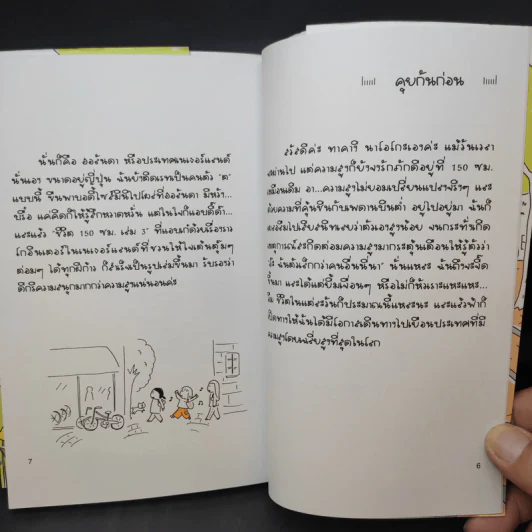 คุยกันก่อน
สวัสดีค่ะ ทาคางิ นาโอโกะเองค่ะ แม้วันเวลา
ผ่านไป แต่ความสูงก็ยังจงรักภักดีอยู่ที่ 150 ซม.
เหมือนเดิม อา...ความสูงไม่ยอมเปลี่ยนแปลงจริงๆ และ
ด้วยความที่คุ้นชินกับเพดานบินต่ำ อยู่ไปอยู่มา ฉันก็
ลืมไปเสียสนิทเลยว่าตัวเองสูงน้อย จนกระทั่งเกิด
เหตุการณ์อะไรเกิดต่อความสูงมากระตุ้นเตือนให้รู้ตัวว่า
ฉันตัวเล็กกว่าคนอื่นนี่นา" นั่นแหละ ฉันถึงจะอึด
ขึ้นมา และได้แต่ยิ้มเจื่อนๆ หรือไม่ก็หัวเราะแหะแหะ...
ชีวิตในแต่ละวันก็ประมาณนี้แหละนะ และแล้วฟ้าก็
เปิดทางให้ฉันได้มีโอกาสเดินทางไปเยือนประเทศที่มี
ความสูงโดยเฉลี่ยสูงที่สุดในโลก
6
นั่นก็คือ ฮอลันดา หรือประเทศเนเธอร์แลนด์
นั่นเอง ขนาดอยู่ญี่ปุ่น ฉันยังติดเรทเป็นคนตัว "ต"
แบบนี้ ขืนพาบอดี้ไซส์มินิไปโผล่ที่ฮอลันดา มีหวัง...
บรื๋อ แค่คิดก็ให้รู้สึกหวาดหวั่น แต่ในใจก็แอบดี๊ด๊า...
และแล้ว "ชีวิต 150 ซม. เล่ม 3" ที่แอบแก้วยเรื่องราว
โกอินเตอร์ในเนเธอร์แลนด์ที่ชวนให้ใจเต้นตุ้มๆ
ต่อมๆ ได้ทุกฝีก้าว ก็สำเร็จเป็นรูปเล่มขึ้นมา รับรองว่า
ดีกรีความสนุกมากกว่าความสูงแน่นอนค่ะ
7